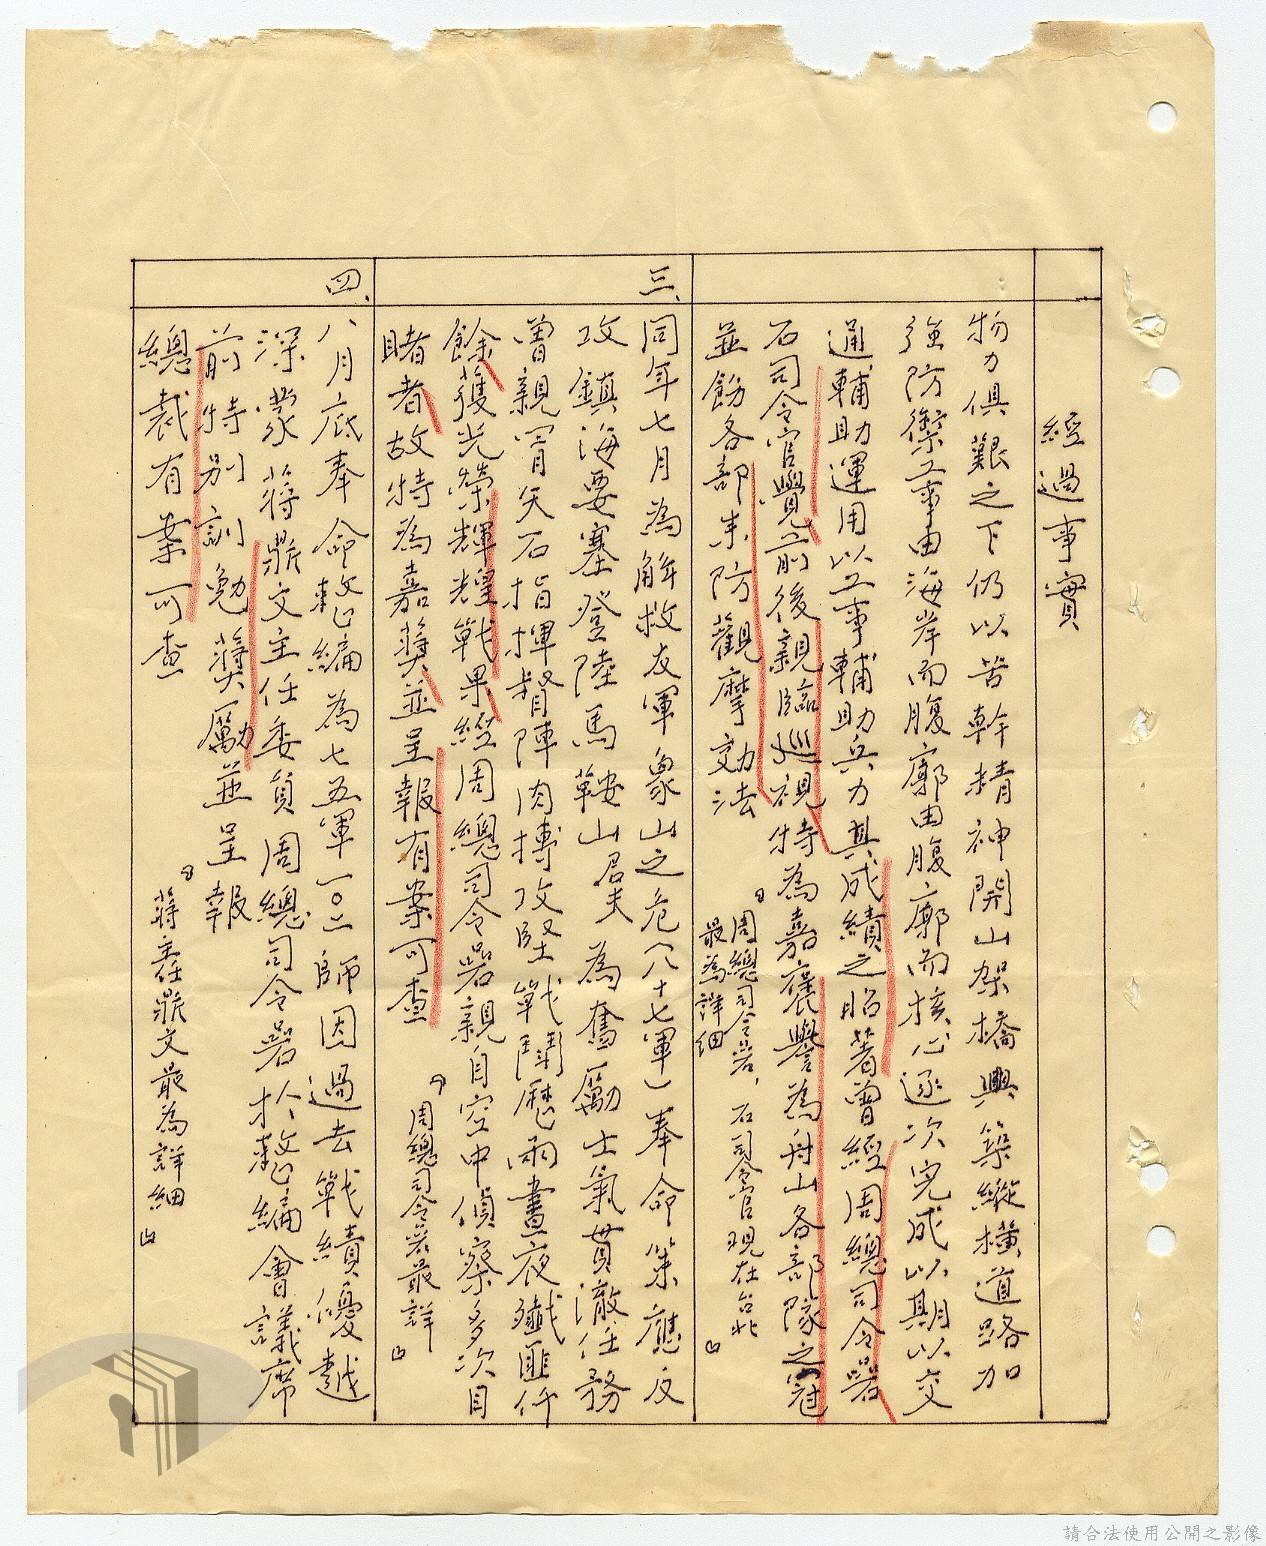 經過事實
物力俱艱之下仍以苦幹精神開山架橋興築縱橫道路加
強防禦工事由海岸而腹廓由腹廓而核心逐次完成以期以交
通輔助運用以工事輔助兵力其成績之昭著曾經周總司令碞
石司令官覺前後親臨巡視特為嘉襃譽為舟山各部隊之冠
並飭各部來防觀摩効法
周總司令碞，石司令官現在台北
最為詳細
三、
同年七月為解救友軍象山之危（八十七軍）奉命策應反
攻鎮海要塞登陸馬鞍山君夫為奮厲士氣貫澈任務
曾親冒矢石指揮督陣肉搏攻堅戰鬥歷兩晝夜殲匪仟
餘獲光榮輝煌戰果經周總司令碞親自空中偵察多次目
睹者故特為嘉獎並呈報有案可查
周總司令碞最詳
四、
八月底奉命整編為七五軍一〇二師因過去戰績優越
深蒙蔣鼎文主任委員周總司令碞於整編會議席
前特別訓勉獎勵並呈報
總裁有案可查
蔣主任鼎文最為詳細
請合法使用公開之影像